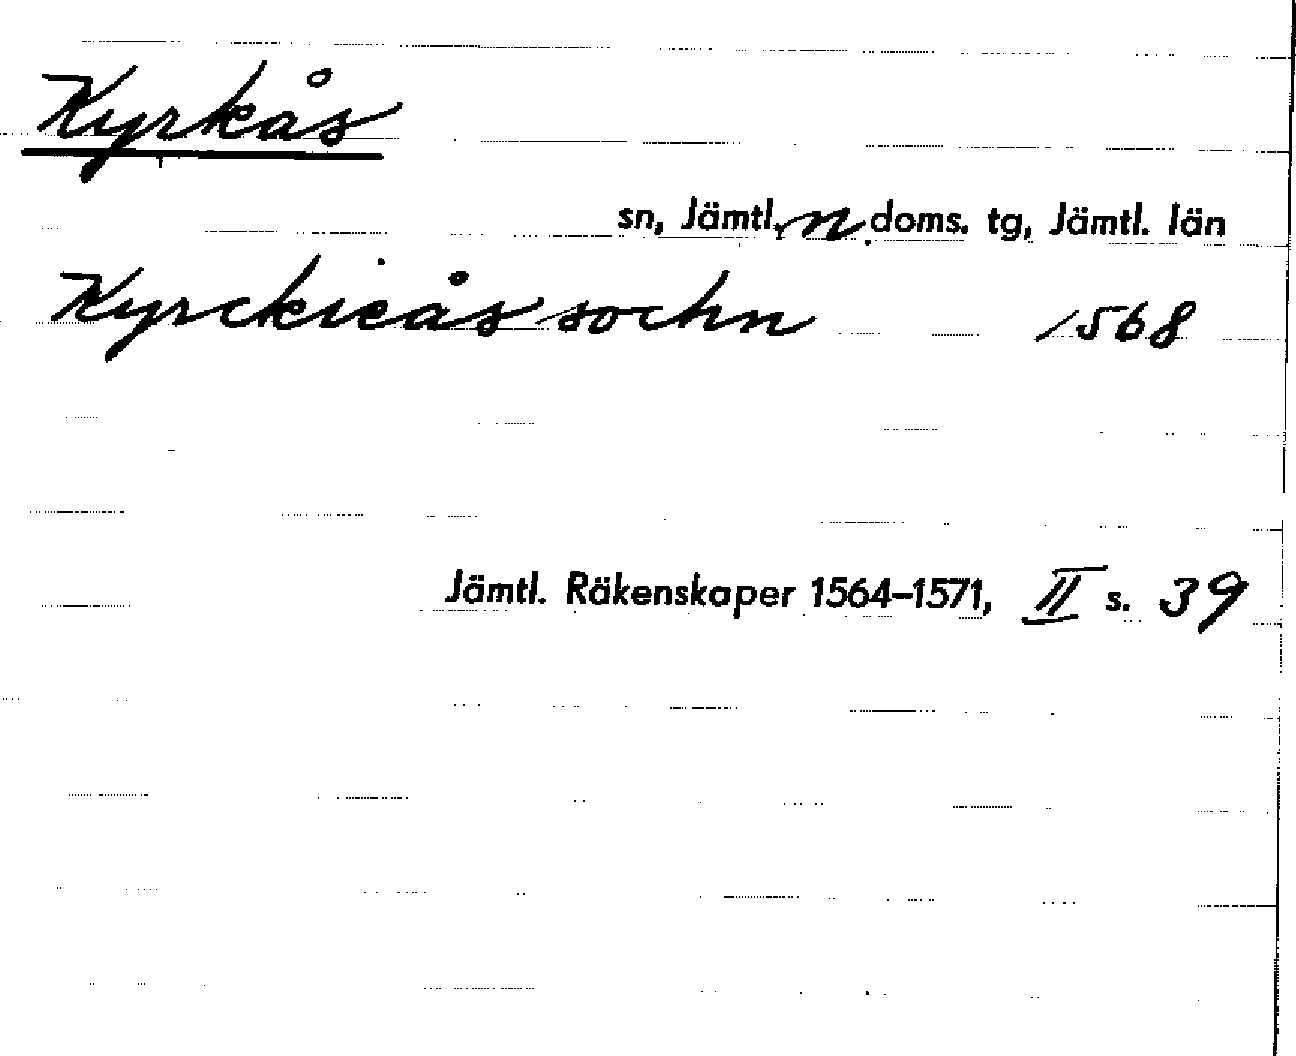 Kyrkås
sn, Jämtl. n. doms. tg, Jämtl. län
Kyrckieås sochn 1568
Jämtl. Räkenskaper 1564–1571, II s. 39